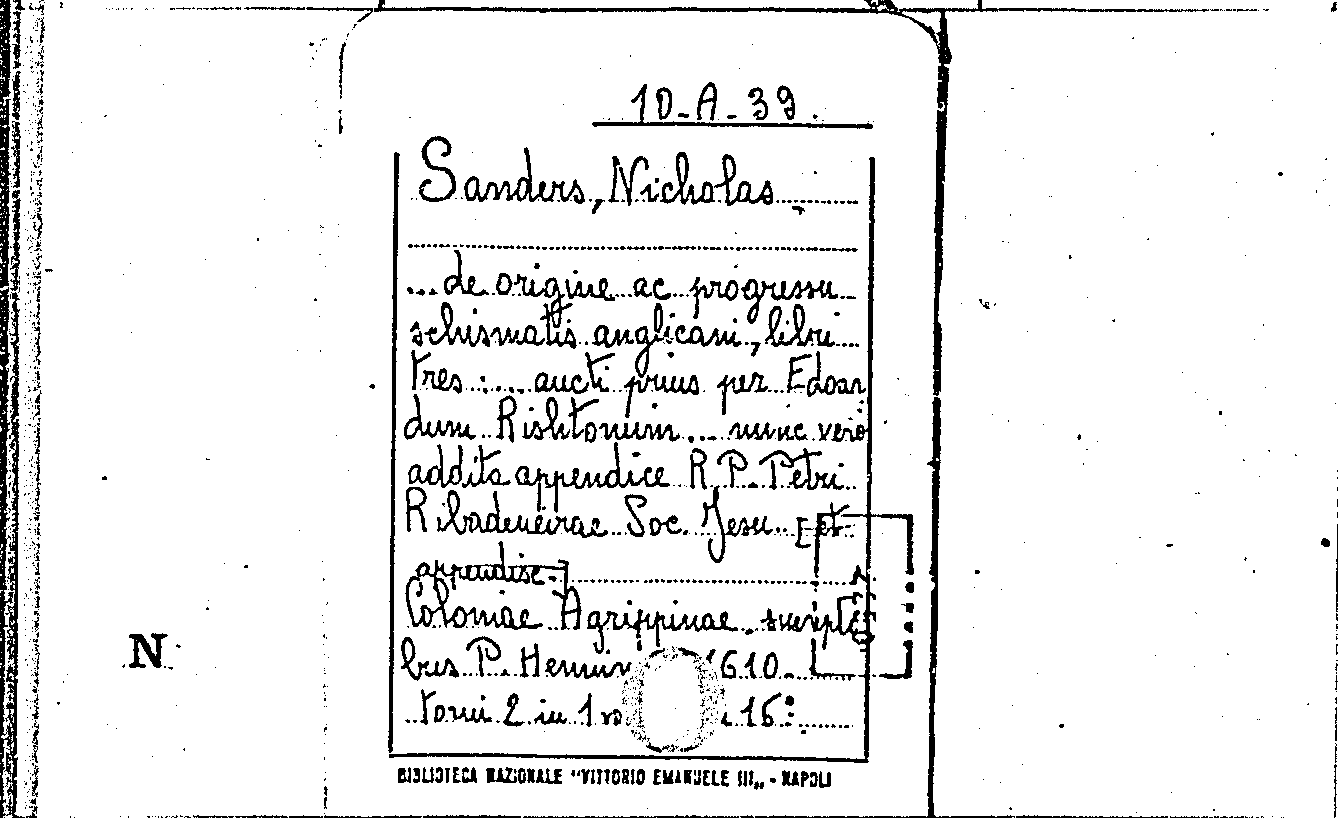 10-A-39.
Sanders, Nicholas
...de origine ac progressu
schismatis anglicani, libri
tres:... aucti prius per Edoar
dum Rishtonum... nunc vero
addita appendice R.P. Petri
Ribadeneirae Soc. Jesu. [et
appendise.]
Coloniae Agrippinae. sumpti
bus P. Hennin 1610.
tomi 2 in 1 16°
N
BIBLIOTECA NAZIONALE "VITTORIO EMANUELE III" - NAPOLI